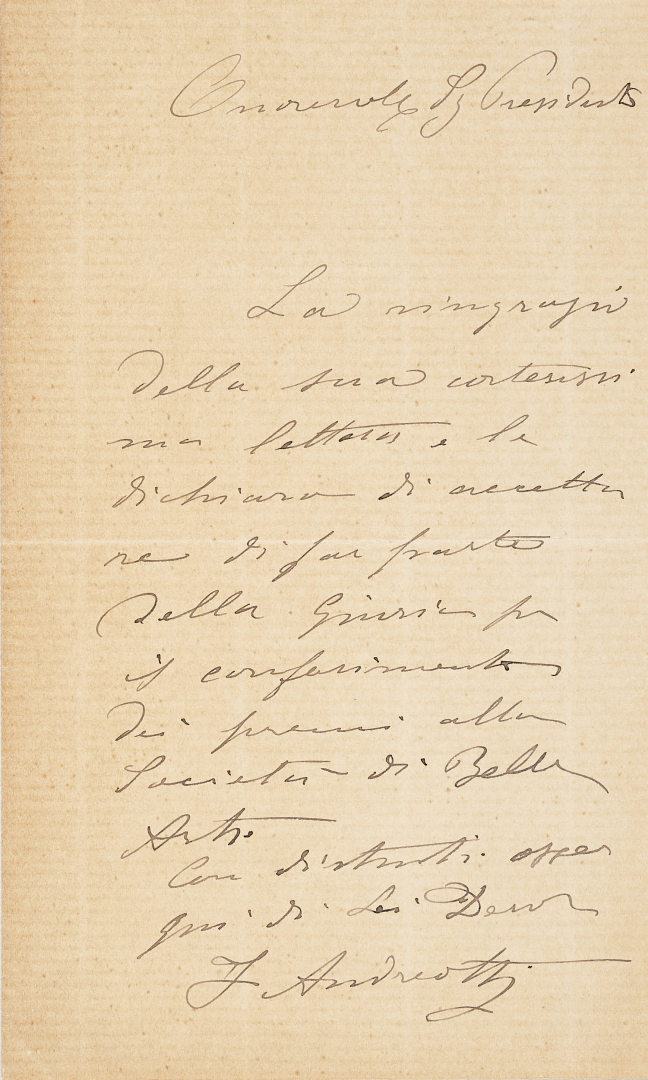 Onorevole Sg Presidente
La ringrazio
della sua cortesissi
ma lettera e le
dichiaro di accetta
re di far parte
della Giuria per
il conferimento
dei premi alla
Società di Belle
Arti.
Con distinti osse
qui di Lei Devo
F Andreotti